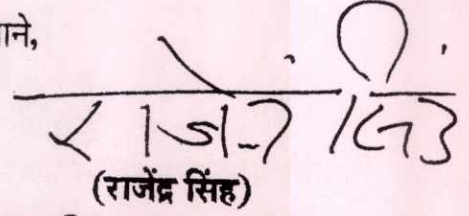 ाने,
राजेन्द्र सिंह
(राजेंद्र सिंह)